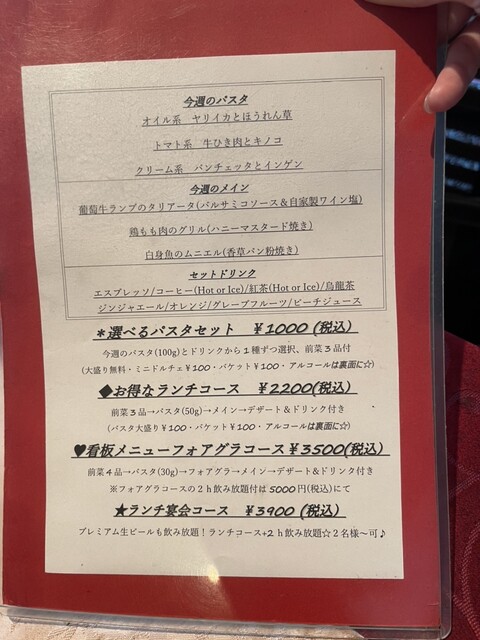 今週のパスタ
オイル系 ヤリイカとほうれん草
トマト系 牛ひき肉とキノコ
クリーム系 パンチェッタとインゲン
今週のメイン
葡萄牛ランプのタリアータ(バルサミコソース＆自家製ワイン塩)
鶏もも肉のグリル(ハニーマスタード焼き)
白身魚のムニエル(香草パン粉焼き)
セットドリンク
エスプレッソ/コーヒー(Hot or Ice)/紅茶(Hot or Ice)/烏龍茶
ジンジャエール/オレンジ/グレープフルーツ/ピーチジュース
＊選べるパスタセット ¥1000 (税込)
今週のパスタ(100g)とドリンクから１種ずつ選択、前菜３品付
(大盛り無料・ミニドルチェ¥100・バケット¥100・アルコールは裏面に☆)
◆お得なランチコース ¥2200(税込)
前菜３品→パスタ(50g)→メイン→デザート＆ドリンク付き
(パスタ大盛り¥100・バケット¥100・アルコールは裏面に☆)
♥看板メニューフォアグラコース¥3500(税込)
前菜４品→パスタ(30g)→フォアグラ→メイン→デザート&ドリンク付き
※フォアグラコースの２ｈ飲み放題付は5000円(税込)にて
★ランチ宴会コース ¥3900 (税込)
プレミアム生ビールも飲み放題！ランチコース+２ｈ飲み放題☆２名様～可♪